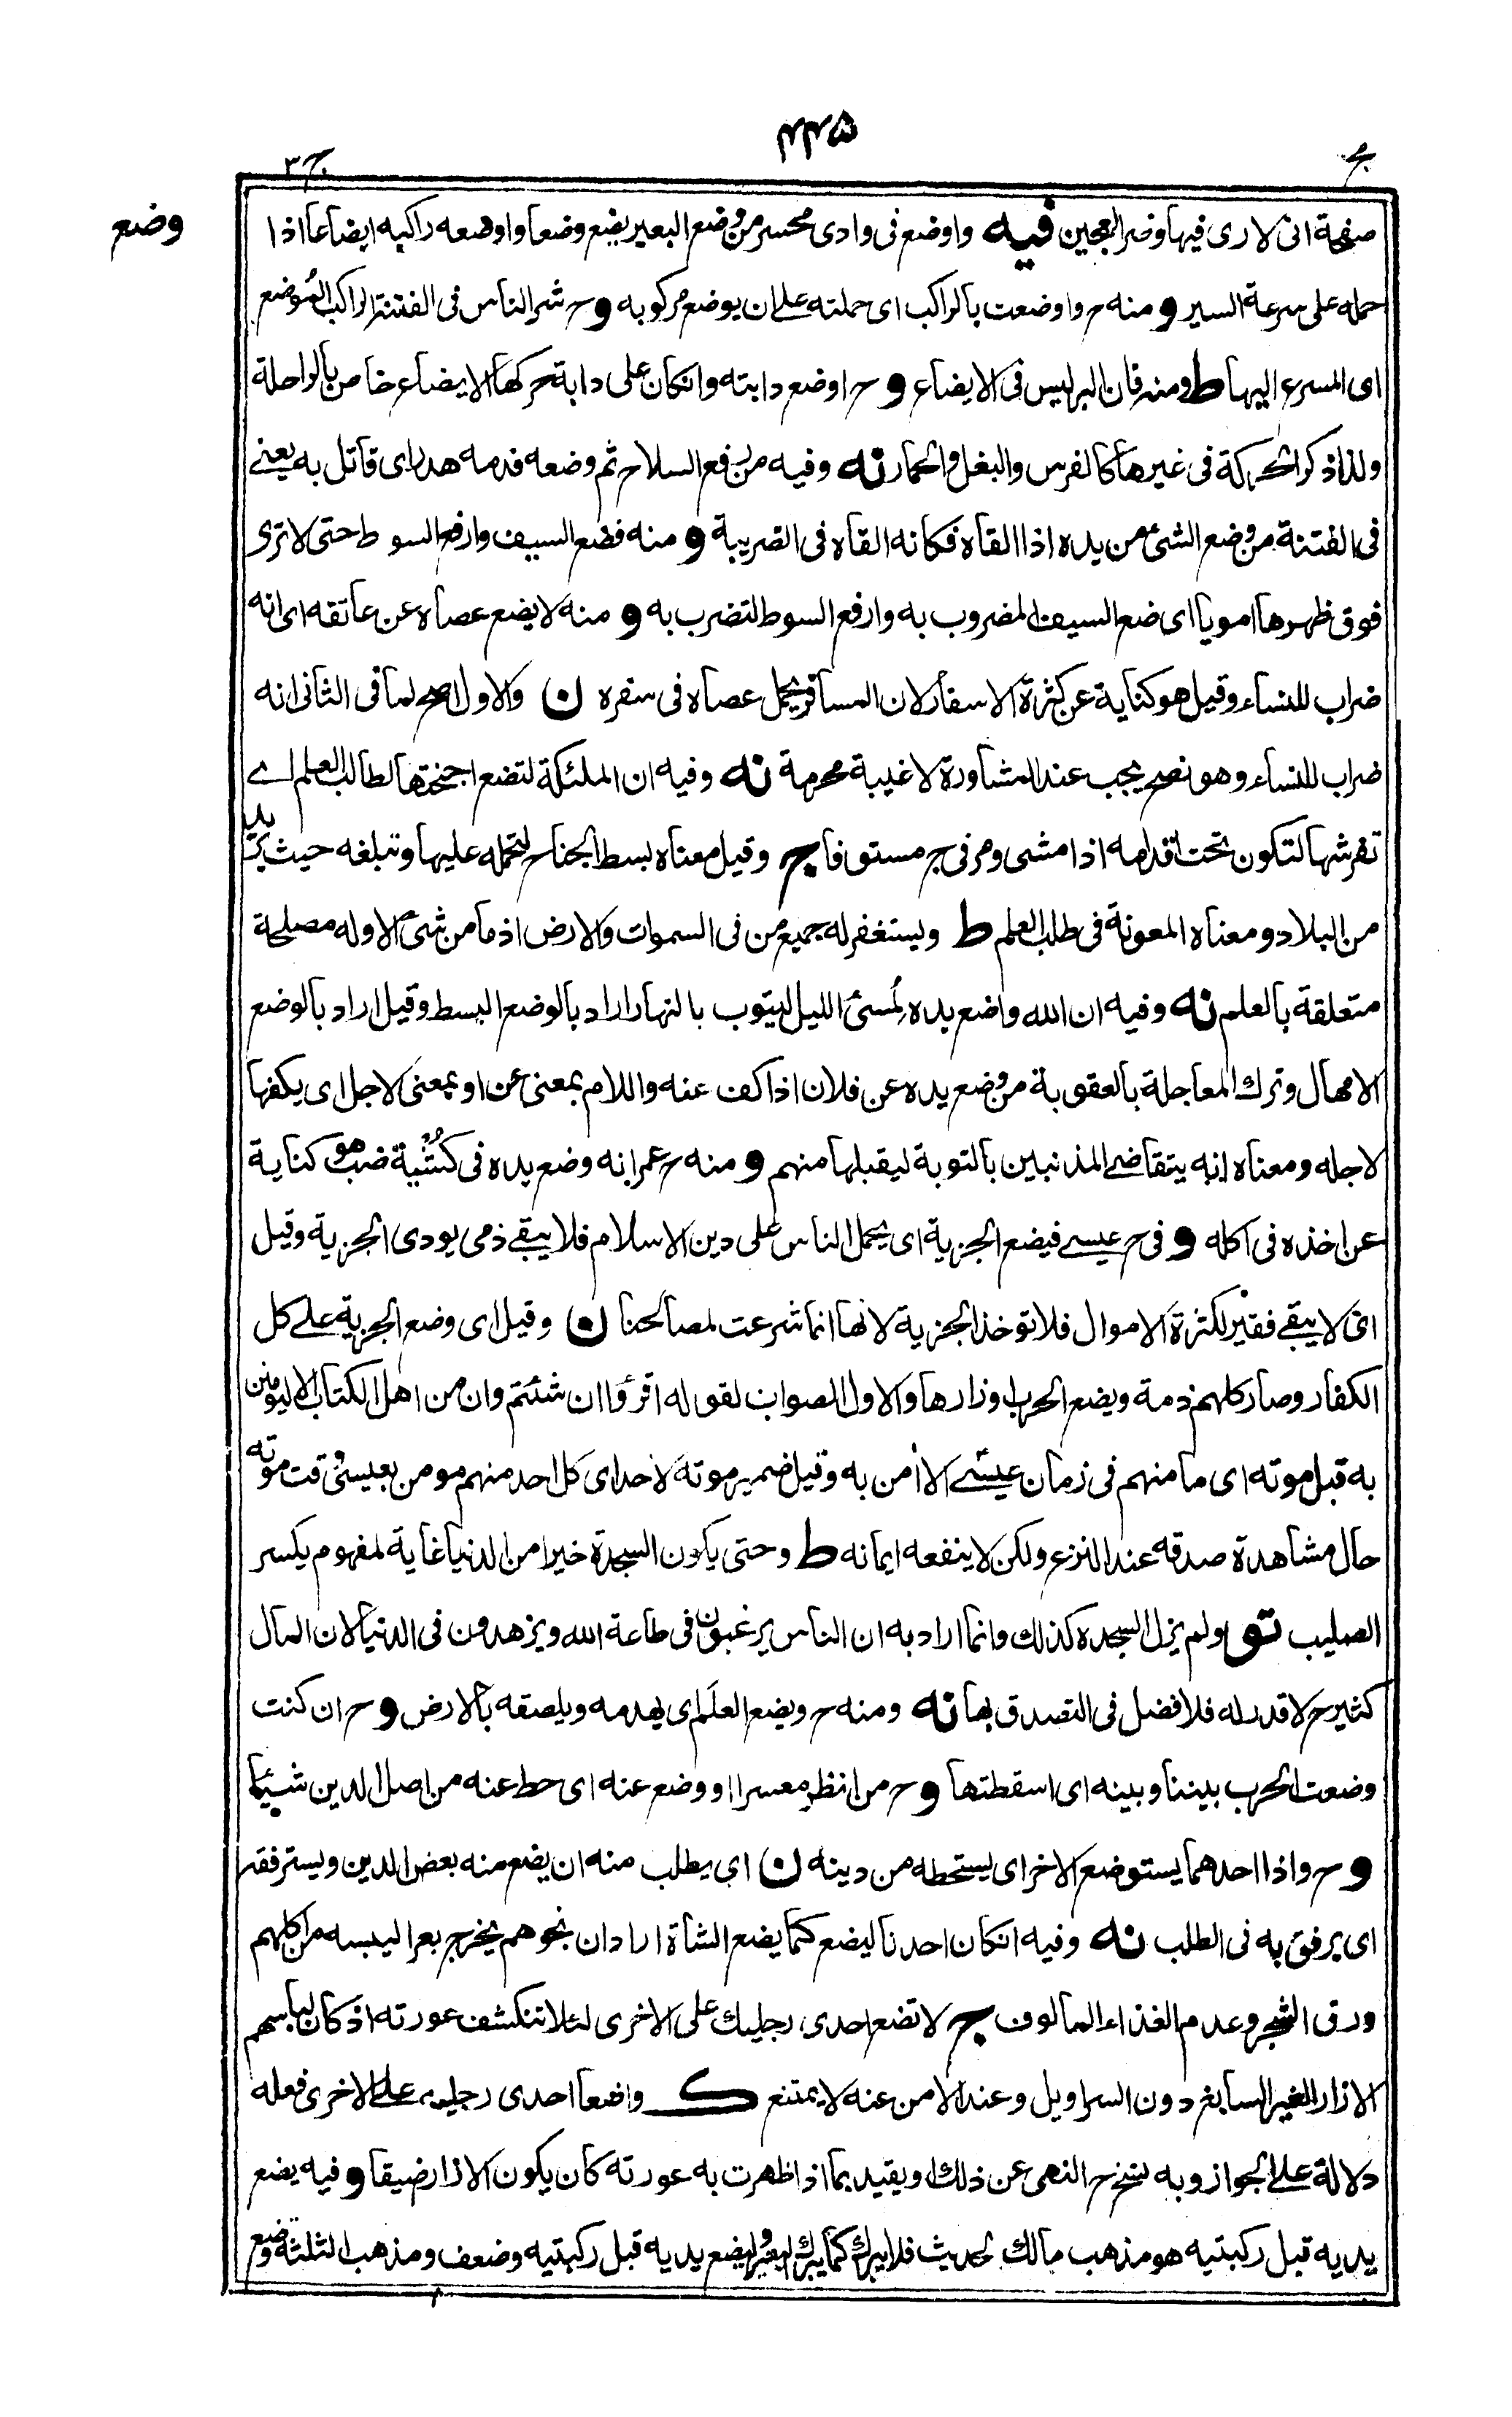 ۴۴۵
ج ج۳
وضع
صفحة انی لاری فیها وضر العجین فیه واوضع فی وادی محسر من وضع البعیر یضع وضعا واوضعه راکبه ایضاعا اذا
حمله علی سرعة السیر و منه ح واوضعت بالراکب ای حملته علی ان یوضع مرکوبه و ح شر الناس فی الفتنة الراکب الموضع
ای المسرع الیها ط ومنه فان البر لیس فی الایضاع و ح اوضع دابته وانکان علی دابة حرکها الایضاع خاص بالراحلة
ولذا ذکر الحرکة فی غیرها کالفرس والبغل والحمار نه وفیه من رفع السلاح ثم وضعه فدمه هدر ای قاتل به یعنی
فی الفتنة من وضع الشئ من یده اذا القاه فکانه القاه فی الضریبة و منه فضع السیف وارفع السوط حتی لا تری
فوق ظهرها امویا ای ضع السیف المضروب به وارفع السوط لتضرب به و منه لا یضع عصاه عن عاتقه ای انه
ضراب للنساء وقیل هو کنایة عن کثرة الاسفار لان المسافر یحمل عصاه فی سفره ن والاول اصح لما فی الثانی انه
ضراب للنساء وهو نصح یجب عند المشاورة لا غیبة محرمة نه وفیه ان الملئکة لتضع اجنحتها لطالب العلم ای
تفرشها لتکون تحت اقدامه اذا مشی ومر فی ج مستوفا ج وقیل معناه بسط الجناح لتحمله علیها وتبلغه حیث یرید
من البلاد ومعناه المعونة فی طلب العلم ط ویستغفر له جمیع من فی السموات والارض اذ ما من شئ الا وله مصلحة
متعلقة بالعلم نه وفیه ان الله واضع یده لمسئ اللیل لیتوب بالنهار اراد بالوضع البسط وقیل اراد بالوضع
الامهال وترك المعاجلة بالعقوبة من وضع یده عن فلان اذا کف عنه واللام بمعنی عن او بمعنی لاجل ای یکفها
لاجله ومعناه انه یتقاضی المذنبین بالتوبة لیقبلها منهم و منه ح عمر انه وضع یده فی کشیة ضب هو کنایة
عن اخذه فی اکله و فی ح عیسی فیضع الجزیة ای یحمل الناس علی دین الاسلام فلا یبقی ذمی یودی الجزیة وقیل
ای لا یبقی فقیر لکثرة الاموال فلا توخذ الجزیة لانها انما شرعت لمصالحنا ن وقیل ای وضع الجزیة علی کل
الکفار وصار کلهم ذمة ویضع الحرب اوزارها والاول الصواب لقوله اقرؤا ان شئتم وان من اهل الکتاب الا لیومنن
به قبل موته ای ما منهم فی زمان عیسی الا امن به وقیل ضمیر موته لاحد ای کل احد منهم مومن بعیسی وقت موته
حال مشاهدة صدقه عند النزع ولکن لا ینفعه ایمانه ط وحتی یکون السجدة خیرا من الدنیا غایة لمفهوم یکسر
الصلیب تو ولم یزل السجده کذلك وانما اراد به ان الناس یرغبون فی طاعة الله ویزهدون فی الدنیا لان المال
کثیر ح لا قدر له فلا فضل فی التصدق بها نه ومنه ح ویضع العلم ای یهدمه ویلصقه بالارض و ح ان کنت
وضعت الحرب بیننا وبینه ای اسقطتها و ح من انظر معسرا او وضع عنه ای حط عنه من اصل الدین شیئا
و ح واذا احدهما یستوضع الاخر ای یستحطه من دینه ن ای یطلب منه ان یضع منه بعض الدین ویسترفقه
ای یرفق به فی الطلب نه وفیه انکان احدنا لیضع کما یضع الشاة اراد ان نجوهم یخرج بعرا لیبسه من اکلهم
ورق الشجر وعدم الغذاء المالوف ج لا تضع احدی رجلیك علی الاخری لئلا تنکشف عورته اذ کان لباسهم
الازار الغیر السابغ دون السراویل وعند الامن عنه لا یمتنع ك واضعا احدی رجلیه علی الاخری فعله
دلالة علی الجواز وبه نسخ ح النهی عن ذلك او یقید بما اذا ظهرت به عورته کان یکون الازار ضیقا و فیه یضع
یدیه قبل رکبتیه هو مذهب مالك لحدیث فلا یبرك کما یبرك البعیر ولیضع یدیه قبل رکبتیه وضعف ومذهب الثلثة وضع